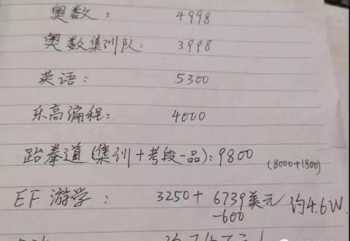 奥数： 4998
奥数集训队： 3998
英语： 5300
乐高编程： 4000
跆拳道(集训+考段一品)： 9800 (8000+1800)
EF 游学： 3250+ 6739美元 约4.6W
-600